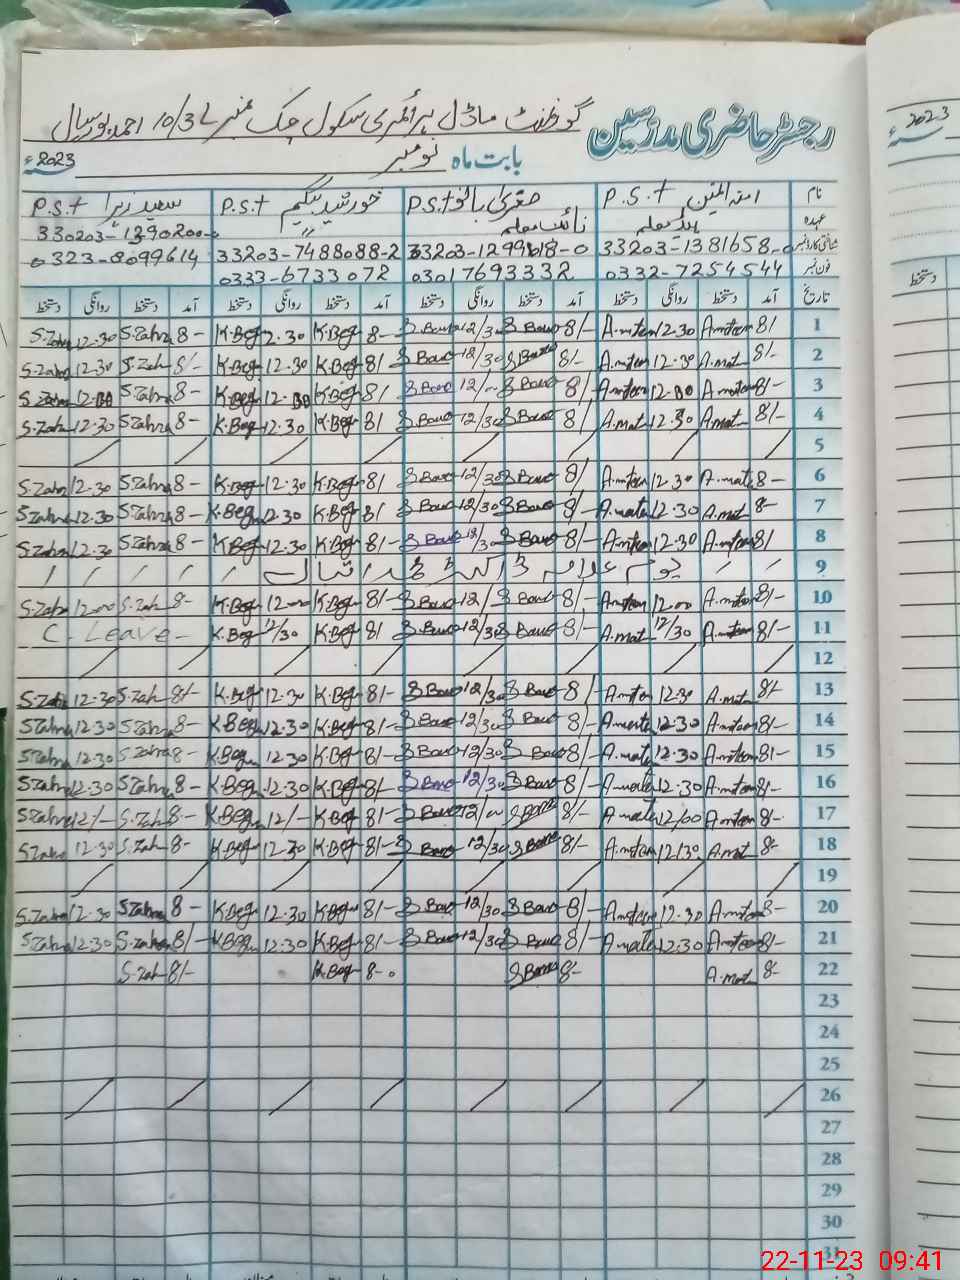 رجسٹر حاضری مدرسین گورنمنٹ ماڈل پرائمری سکول چک نمبر 10/3L احمد پور سیال
بابت ماہ نومبر 2023ء
نام P.S.T P.S.T صغریٰ بانو P.S.T خورشید بیگم P.S.T سعید زہرا
عہدہ ہیڈ معلمہ نائب معلمہ 330203-1390200-0
شناختی کارڈ نمبر 33203-1381658-0 33203-1299618-0 33203-7488088-2 0323-8099614
فون نمبر 0332-7254544 03017693332 0333-6733072
تاریخ آمد دستخط روانگی دستخط آمد دستخط روانگی دستخط آمد دستخط روانگی دستخط آمد دستخط روانگی دستخط
S.Zahra 12.30 S.Zahra 8- K.Beg 12.30 K.Beg 8- S.Bano 12/30 S.Bano 8/- A.mteen 12.30 A.mteen 8/ 1
S.Zahra 12.30 S.Zah 8/- K.Beg 12.30 K.Beg 8/ S.Bano 12/30 S.Bano 8/- A.mteen 12.30 A.mat 8/- 2
S.Zahra 12.30 S.Zahra 8- K.Beg 12.30 K.Beg 8/ S.Bano 12/- S.Bano 8/ A.mteen 12.30 A.mteen 8/- 3
S.Zah 12.30 S.Zahra 8- K.Beg 12.30 K.Beg 8/ S.Bano 12/30 S.Bano 8/ A.mat 12.30 A.mat 8/- 4
/ / / / / / / / 5
S.Zahra 12.30 S.Zahra 8- K.Beg 12.30 K.Beg 8/ S.Bano 12/30 S.Bano 8/ A.mteen 12.30 A.mate 8- 6
S.Zahra 12.30 S.Zahra 8- K.Beg 12.30 K.Beg 8/ S.Bano 12/30 S.Bano 8/- A.mate 12.30 A.mat 8- 7
S.Zah 12.30 S.Zahra 8- K.Beg 12.30 K.Beg 8/- S.Bano 12/30 S.Bano 8/- A.mteen 12.30 A.mteen 8/ 8
/ / / / یوم علامہ ڈاکٹر محمد اقبال / / 9
S.Zah 12.00 S.Zah 8- K.Beg 12.00 K.Beg 8/- S.Bano 12/- S.Bano 8/- A.mteen 12.00 A.mteen 8/- 10
C-Leave- K.Beg 12/30 K.Beg 8/ S.Bano 12/30 S.Bano 8/- A.mat 12/30 A.mteen 8/- 11
/ / / / / / / / 12
S.Zah 12.30 S.Zah 8/- K.Beg 12.30 K.Beg 8/- S.Bano 12/30 S.Bano 8/ A.mteen 12.30 A.mat 8/- 13
S.Zahra 12.30 S.Zahra 8- K.Beg 12.30 K.Beg 8/- S.Bano 12/30 S.Bano 8/- A.mate 12.30 A.mteen 8/- 14
S.Zahra 12.30 S.Zahra 8- K.Beg 12.30 K.Beg 8/- S.Bano 12/30 S.Bano 8/- A.mate 12.30 A.mteen 8/- 15
S.Zahra 12.30 S.Zahra 8- K.Beg 12.30 K.Beg 8/- S.Bano 12/30 S.Bano 8/- A.mate 12.30 A.mteen 8/- 16
S.Zahra 12/- S.Zah 8- K.Beg 12/- K.Beg 8/- S.Bano 12/00 S.Bano 8/- A.mate 12/00 A.mteen 8- 17
S.Zahra 12.30 S.Zah 8- K.Beg 12.30 K.Beg 8/- S.Bano 12/30 S.Bano 8/- A.mteen 12.30 A.mat 8- 18
/ / / / / / / / 19
S.Zahra 12.30 S.Zahra 8- K.Beg 12.30 K.Beg 8/- S.Bano 12/30 S.Bano 8/- A.mteen 12.30 A.mteen 8- 20
S.Zahra 12.30 S.Zahra 8/- K.Beg 12.30 K.Beg 8/- S.Bano 12/30 S.Bano 8/- A.mate 12.30 A.mteen 8/- 21
S.Zah 8/- K.Beg 8-0 S.Bano 8- A.mat 8- 22
23
24
25
/ / / / / / / / 26
27
28
29
30
31
2023ء
دستخط
22-11-23 09:41